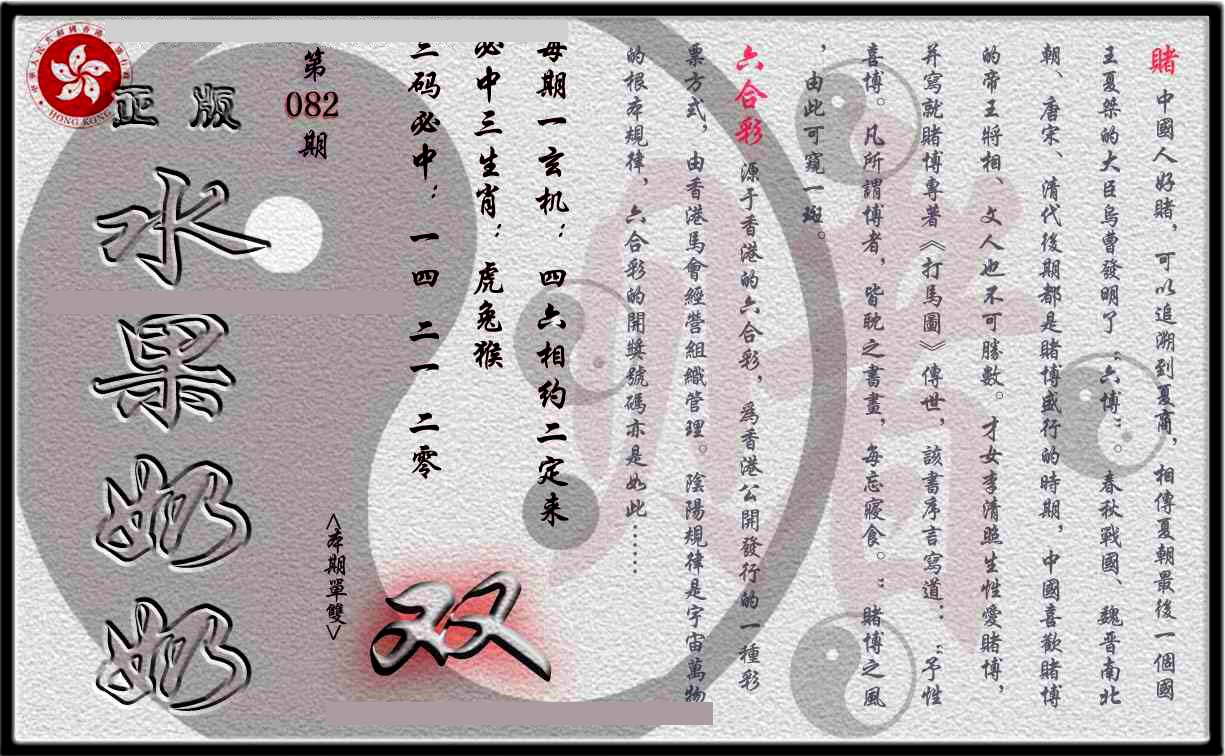 賭 中國人好賭，可以追溯到夏商，相傳夏朝最後一個國
王夏桀的大臣烏曹發明了“六博”。春秋戰國、魏晋南北
朝、唐宋、清代後期都是賭博盛行的時期，中國喜歡賭博
的帝王將相、文人也不可勝數。才女李清照生性愛賭博，
并寫就賭博專著《打馬圖》傳世，該書序言寫道：“予性
喜博。凡所謂博者，皆耽之晝畫，每忘寢食。”賭博之風
，由此可窺一斑。
六合彩 源于香港的六合彩，為香港公開發行的一種彩
票方式，由香港馬會經營組織管理。陰陽規律是宇宙萬物
的根本規律，六合彩的開獎號碼亦是如此……
每期一玄机：四六相约二定来
必中三生肖：虎兔猴
三码必中：一四 二一 二零
第
082
期
<本期單雙>
双
正版
水果奶奶
HONG KONG